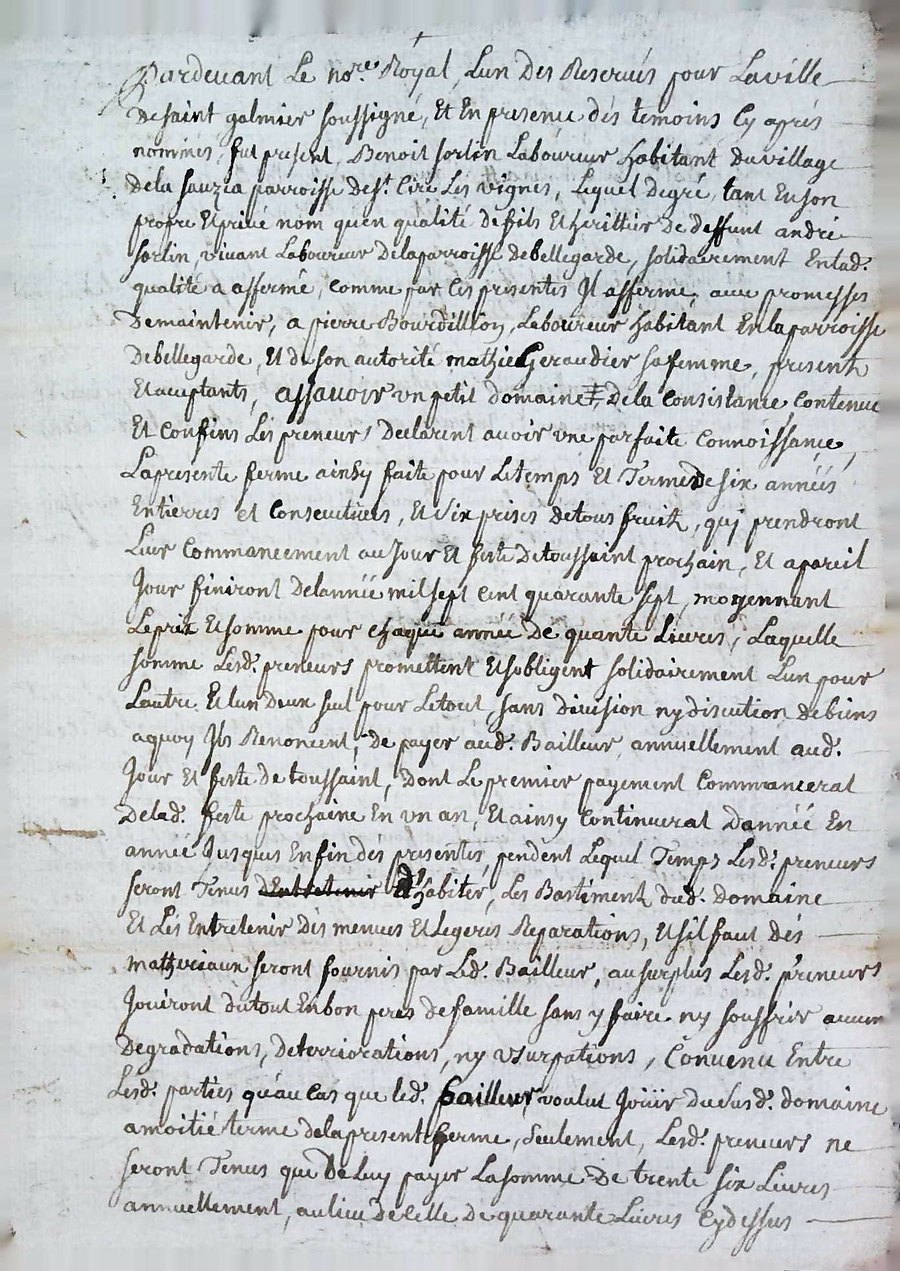 Pardevant Le no.re Royal, Lun Des Reservés pour Laville
Desaint galmier soussigné, Et En presence des temoins Cy aprés
nommés, fut present, Benoit sorlin Laboureur habitant du village
Dela sauzéa parroisse de s.t Cire Les vignes, Lequel Degré, tant En son
propre Et privé nom quen qualité defils Et herittier De deffunt andré
sorlin, vivant Laboureur Delaparroisse debellegarde, solidairement En lad.
qualité a affermé, comme par Ces presentes Il afferme, avec promesses
Demaintenir, a pierre Bourdillon, Laboureur habitant En laparroisse
Debellegarde, Et de son autorité mathie Geraudier sa femme, presents
Et aceptants, assavoir un petit domaine ‡, De la Consistance, Contenue
Et Confins Les preneurs Declarent avoir une parfaite Connoissance,
Lapresente ferme ainsy faite pour Letemps Et Terme de six années
Entierres et Consecutives, Et six prises detous fruits, quj prendront
Leur Commancement au Jour Et feste Detoussaint prochain, Et apareil
Jour finiront Delannée mil sept Cent quarante sept, moyennant
Leprix Et somme pour chaque année De quante Livres, Laquelle
somme Lesd. preneurs promettent Et sobligent solidairement Lun pour
Lautre Et lun deux seul pour Letout, sans division ny discution debiens
aquoy Ils Renoncent, de payer aud. Bailleur annuellement aud.
Jour Et feste de toussaint, Dont Le premier payement Commancerat
Delad. feste prochaine En un an, Et ainsy Continuerat Dannée En
année Jusques Enfin des presentes, pendent Lequel Temps Lesd. preneurs
seront Tenus dEntretenir d'habiter, Les Bastiments dud. Domaine
Et Les Entretenir Des menues Et Legeres Reparations, Et sil faut des
matheriaux seront fournis par Led. Bailleur, au surplus Lesd. preneurs
Jouiront dutout En bon peres de famille sans y faire ny souffrir aucun
Degradations, Deterriorations, ny usurpations, Convenu Entre
Lesd. parties qu'au Cas que led. Bailleur voulut Joüir Dusus d. domaine
amoitié terme delapresente ferme, seulement, Lesd. preneurs ne
seront Tenus que De Luy payer Lasomme De trente six Livres
annuellement, aulieu De Celle De quarante Livres Cydessus